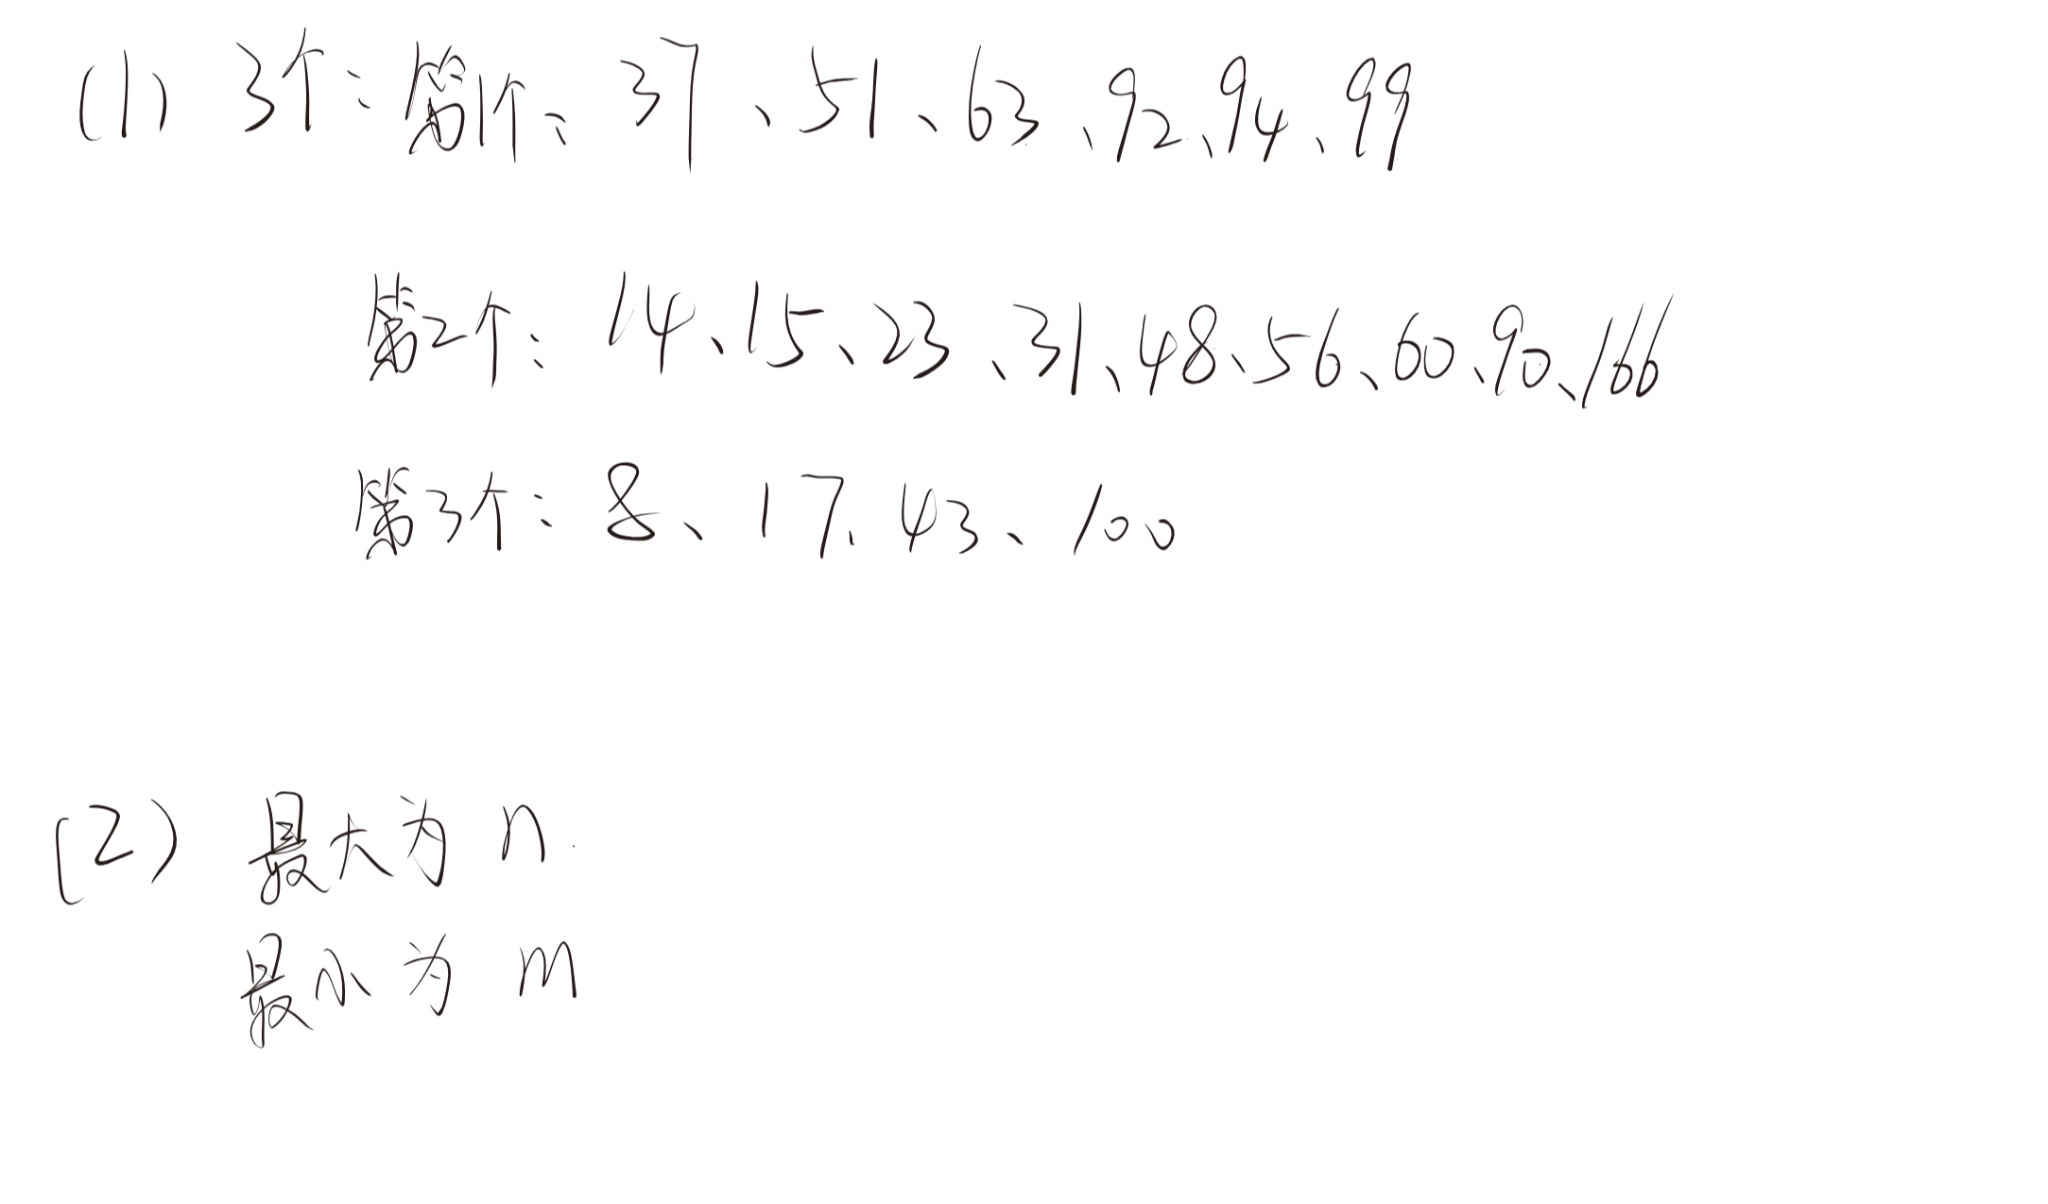 (1) 3个：第1个：37、51、63、92、94、99
第2个：14、15、23、31、48、56、60、90、166
第3个：8、17、43、100
(2) 最大为 n.
最小为 m